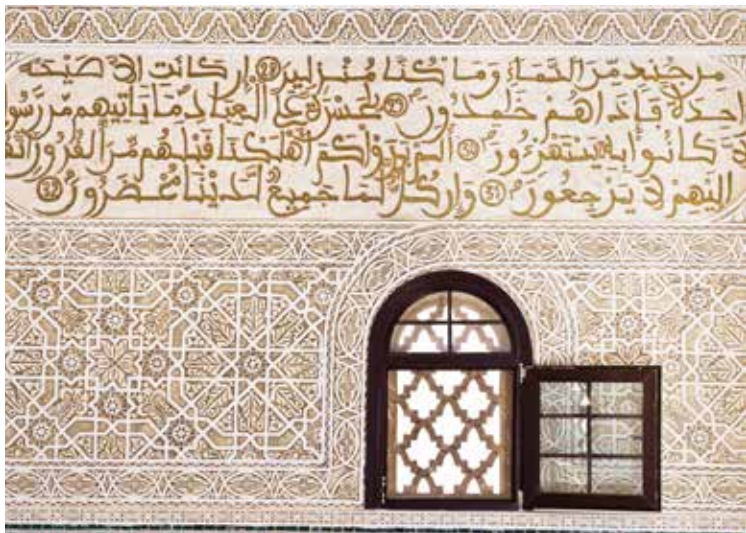 من جند من السماء وما كنا منزلين ٢٨ إن كانت إلا صيحة
احدة فإذا هم خمدون ٢٩ يحسرة على العباد ما ياتيهم من رسو
لا كانوا به يستهزءون ٣٠ ألم يروا كم أهلكنا قبلهم من القرون
إليهم لا يرجعون 31 وإن كل لما جميع لدينا محضرون ٣٢